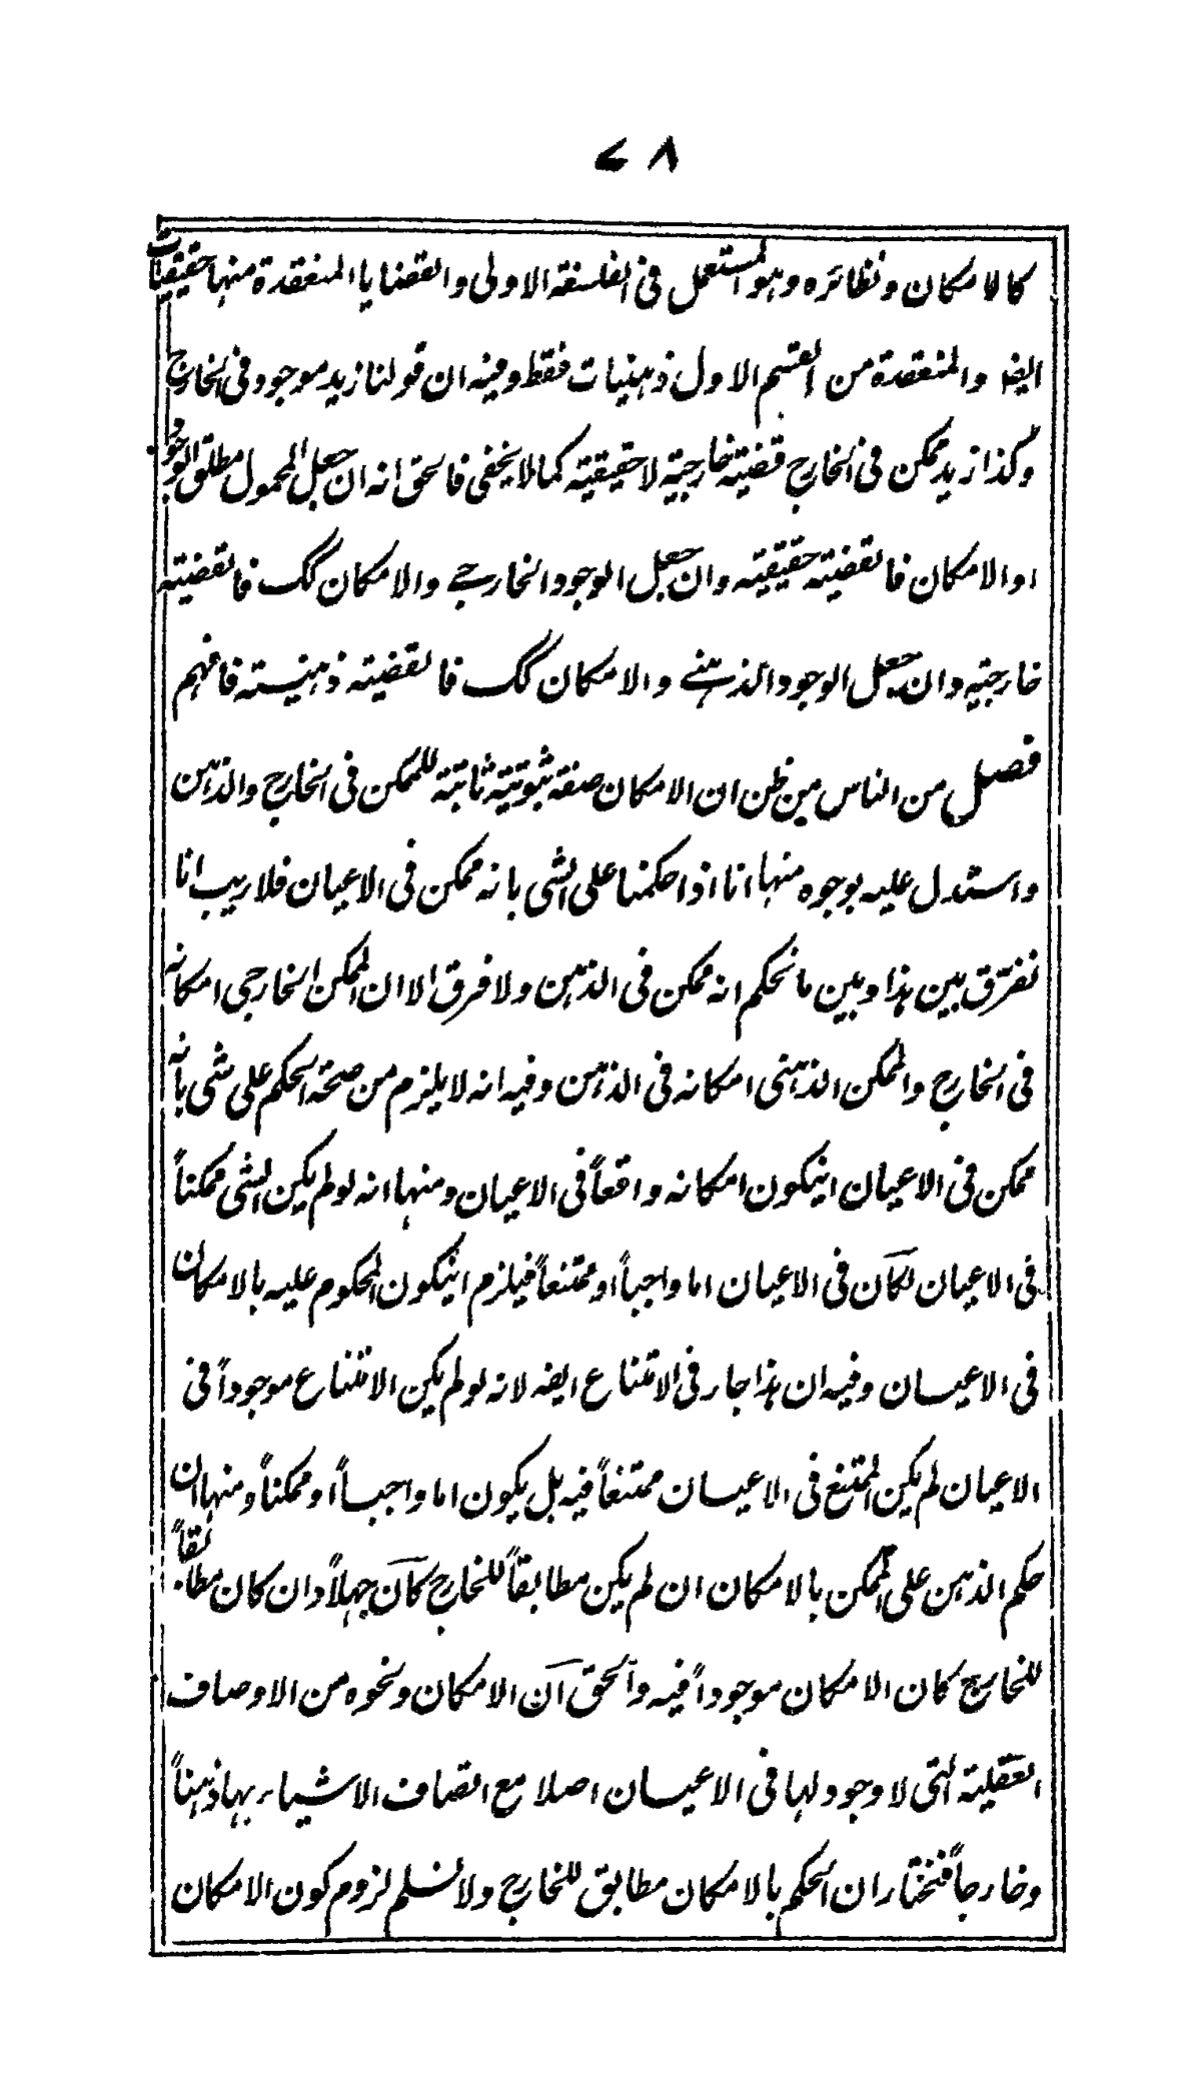 ٧٨
كالامكان ونظائره وهو المستعمل فى الفلسفة الاولى والقضايا المنعقدة منها حقيقيات
ايضا والمنعقدة من القسم الاول ذهنيات فقط وفيه ان قولنا زيد موجود فى الخارج
وكذا زيد ممكن فى الخارج قضية خارجية لا حقيقية كما لا يخفى فالحق انه ان جعل المحمول مطلق الوجود
او الامكان فالقضية حقيقية وان جعل الوجود الخارجے والامكان كک فالقضية
خارجية وان جعل الوجود الذهنے والامكان كک فالقضية ذهنية فافهم
فصل من الناس من ظن ان الامكان صفة ثبوتية ثابتة للممكن فى الخارج والذهن
واستدل عليه بوجوه منها انا اذا حكمنا على الشى بانه ممكن فى الاعيان فلا ريب انا
نفرق بين هذا وبين ما نحكم انه ممكن فى الذهن ولا فرق الا ان الممكن الخارجى امكانه
فى الخارج والممكن الذهنى امكانه فى الذهن وفيه انه لا يلزم من صحة الحكم على شى بانه
ممكن فى الاعيان اينكون امكانه واقعاً فى الاعيان ومنها انه لو لم يكن الشى ممكناً
فى الاعيان لكان فى الاعيان اما واجباً او ممتنعاً فيلزم اينكون المحكوم عليه بالامكان
فى الاعيان وفيه ان هذا جار فى الامتناع ايضه لانه لو لم يكن الامتناع موجوداً فى
الاعيان لم يكن الممتنع فى الاعيان ممتنعاً فيه بل يكون اما واجباً او ممكناً ومنها ان
حكم الذهن على الممكن بالامكان ان لم يكن مطابقاً للخارج كان جهلاً وان كان مطابقاً
للخارج كان الامكان موجوداً فيه والحق ان الامكان ونحوه من الاوصاف
العقلية التى لا وجود لها فى الاعيان اصلا مع اتصاف الاشياء بها ذهناً
وخارجاً فنختار ان الحكم بالامكان مطابق للخارج ولا نسلم لزوم كون الامكان